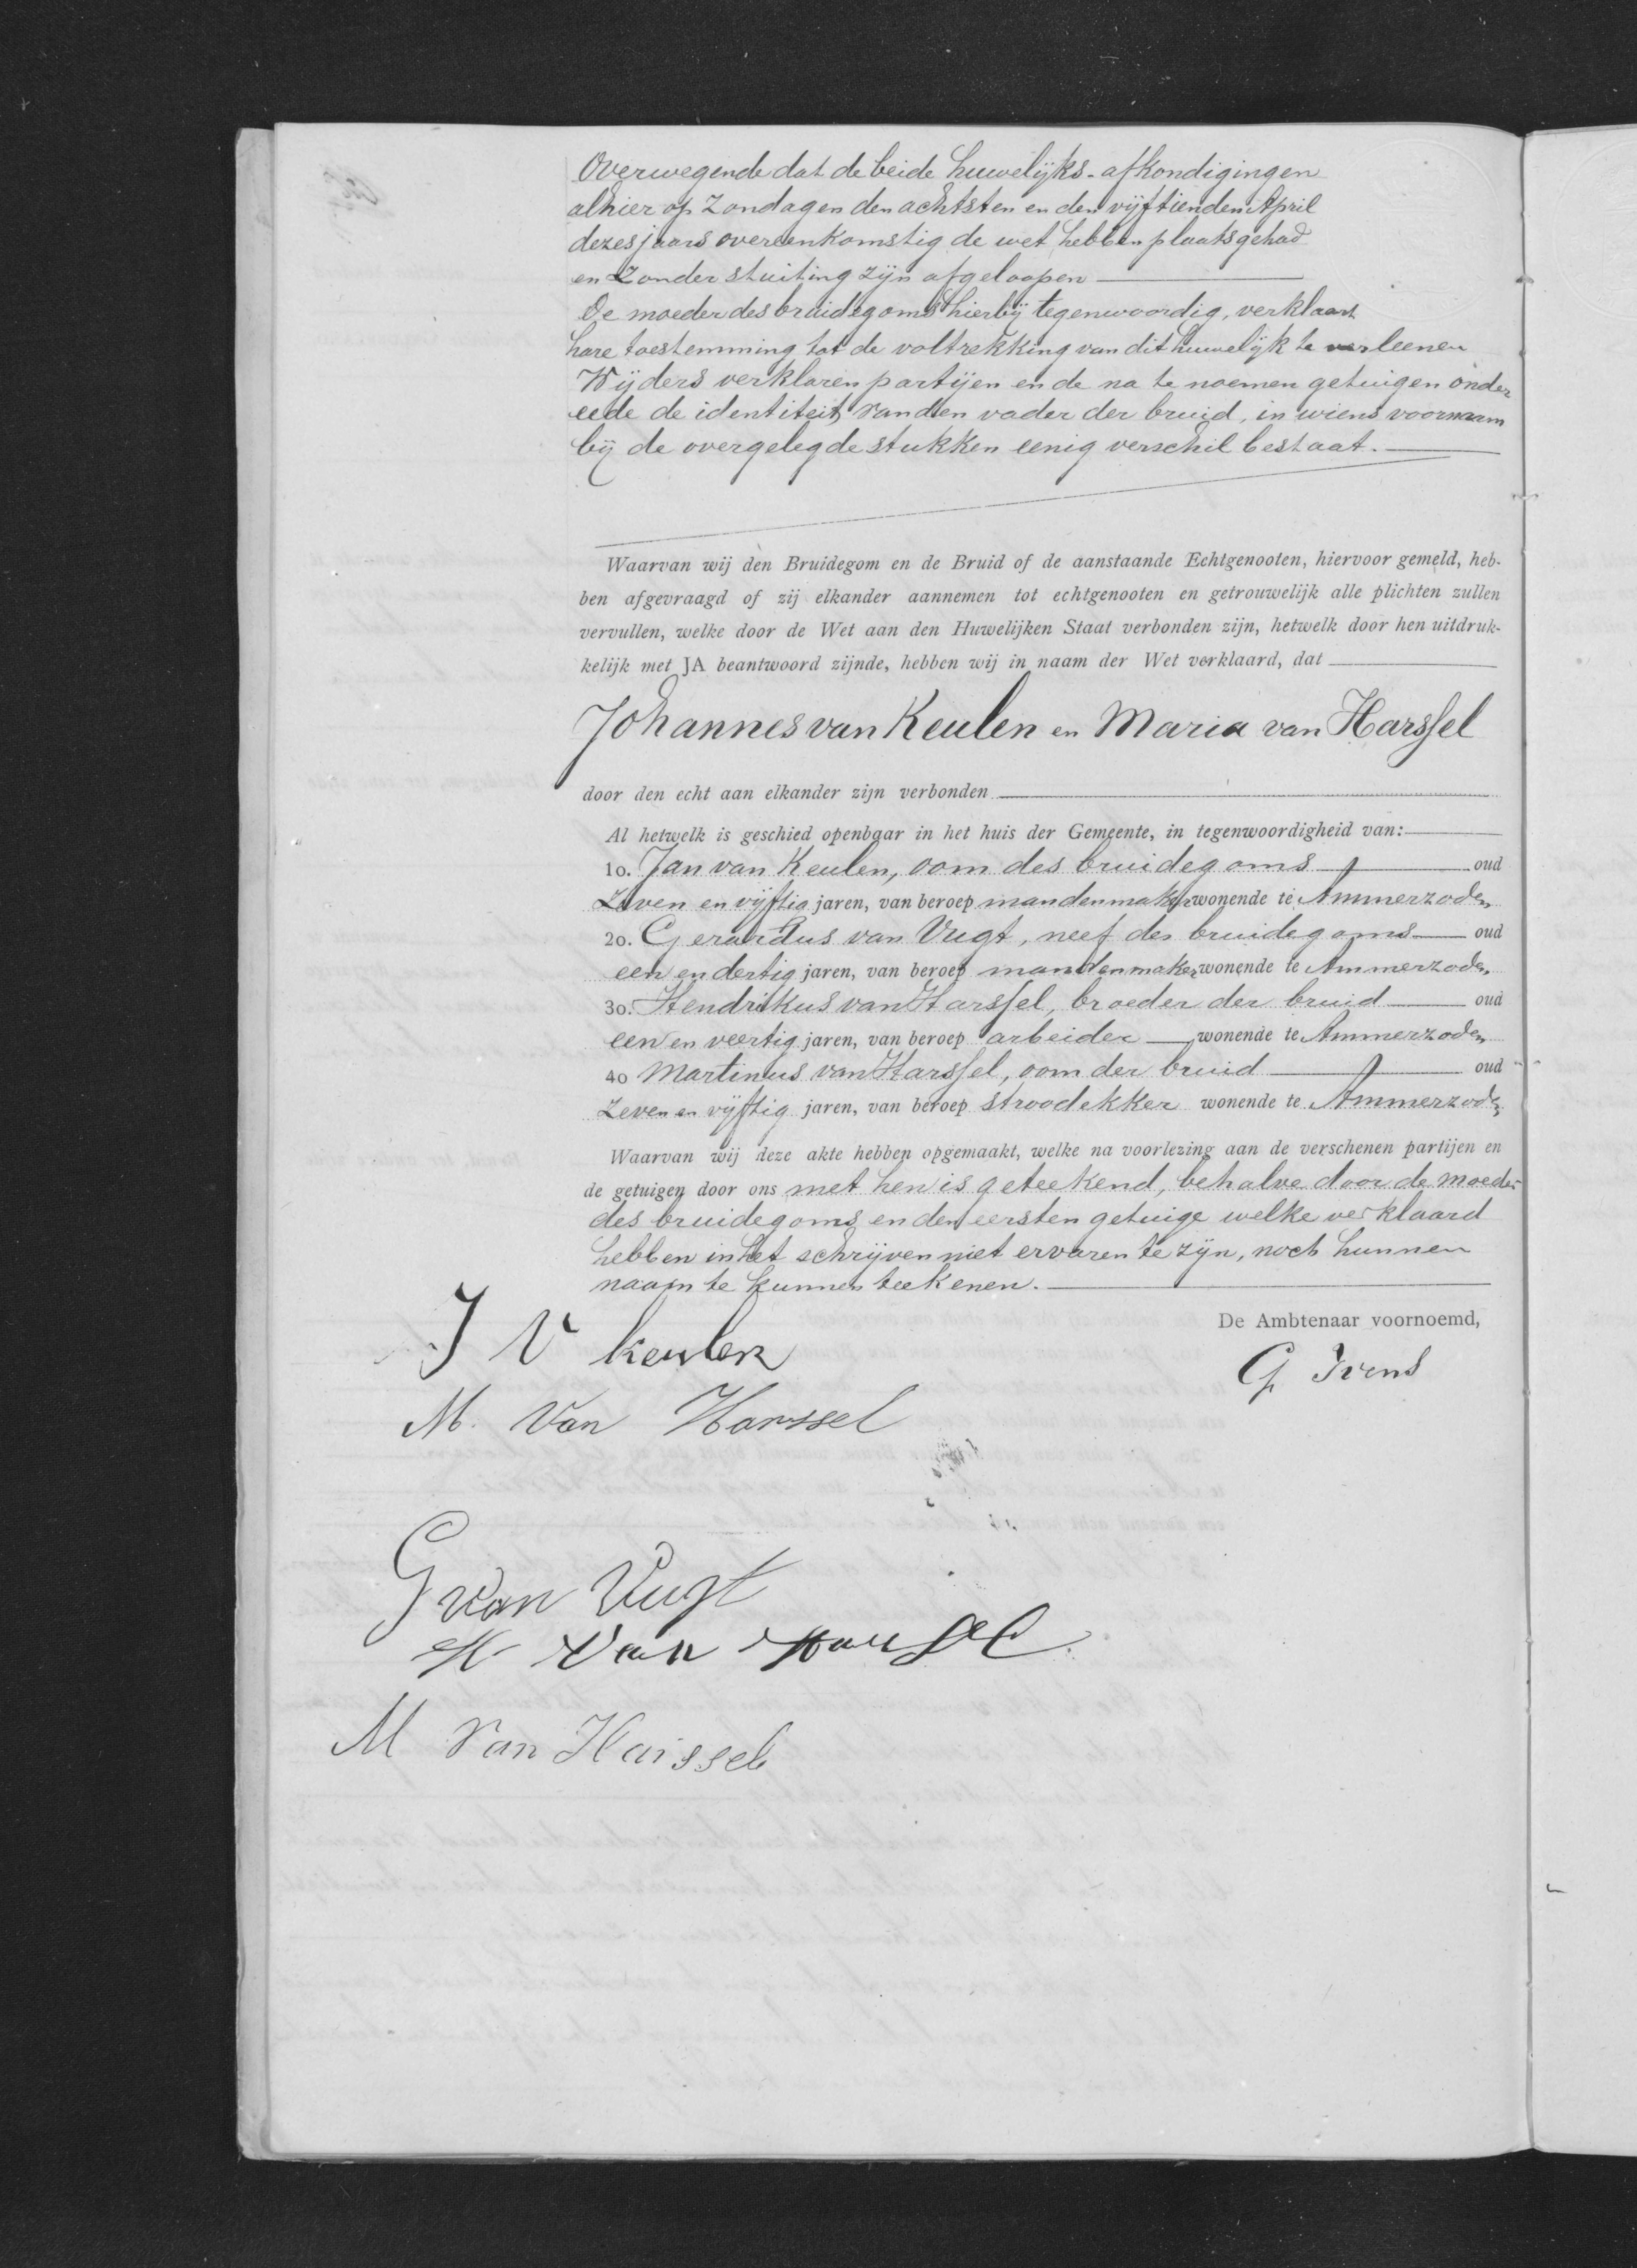 Overwegende dat de beide huwelijks-afkondigingen
alhier op Zondagen den achtsten en den vijftienden April
dezes jaars overeenkomstig de wet hebben plaats gehad
en zonder stuiting zijn afgeloopen
De moeder des bruidegoms hierbij tegenwoordig, verklaart
hare toestemming tot de voltrekking van dit huwelijk te verleenen
Wijders verklaren partijen en de na te noemen getuigen onder
eede de identiteit van den vader der bruid, in wiens voornaam
bij de overgelegde stukken eenig verschil bestaat.
Waarvan wij den Bruidegom en de Bruid of de aanstaande Echtgenooten, hiervoor gemeld, heb-
ben afgevraagd of zij elkander aannemen tot echtgenooten en getrouwelijk alle plichten zullen
vervullen, welke door de Wet aan den Huwelijken Staat verbonden zijn, hetwelk door hen uitdruk-
kelijk met JA beantwoord zijnde, hebben wij in naam der Wet verklaard, dat
Johannes van Keulen en Maria van Harssel
door den echt aan elkander zijn verbonden
Al hetwelk is geschied openbaar in het huis der Gemeente, in tegenwoordigheid van:
1o. Jan van Keulen, oom des bruidegoms oud
zeven en vijftig jaren, van beroep mandenmaker wonende te Ammerzoden
2o. Gerardus van Vugt, neef des bruidegoms oud
een en dertig jaren, van beroep mandenmaker wonende te Ammerzoden
3o. Hendrikus van Harssel, broeder der bruid oud
een en veertig jaren, van beroep arbeider wonende te Ammerzoden
4o Martinus van Harssel, oom der bruid oud
zeven en vijftig jaren, van beroep stroodekker wonende te Ammerzoden
Waarvan wij deze akte hebben opgemaakt, welke na voorlezing aan de verschenen partijen en
de getuigen door ons met hen is geteekend, behalve door de moeder
des bruidegoms en den eersten getuige welke verklaard
hebben in het schrijven niet ervaren te zijn, noch hunnen
naam te kunnen teekenen.
De Ambtenaar voornoemd,
J V keulen
G Ivens
M. Van Harssel
G van Vugt
H van Harssel
M van Harssel